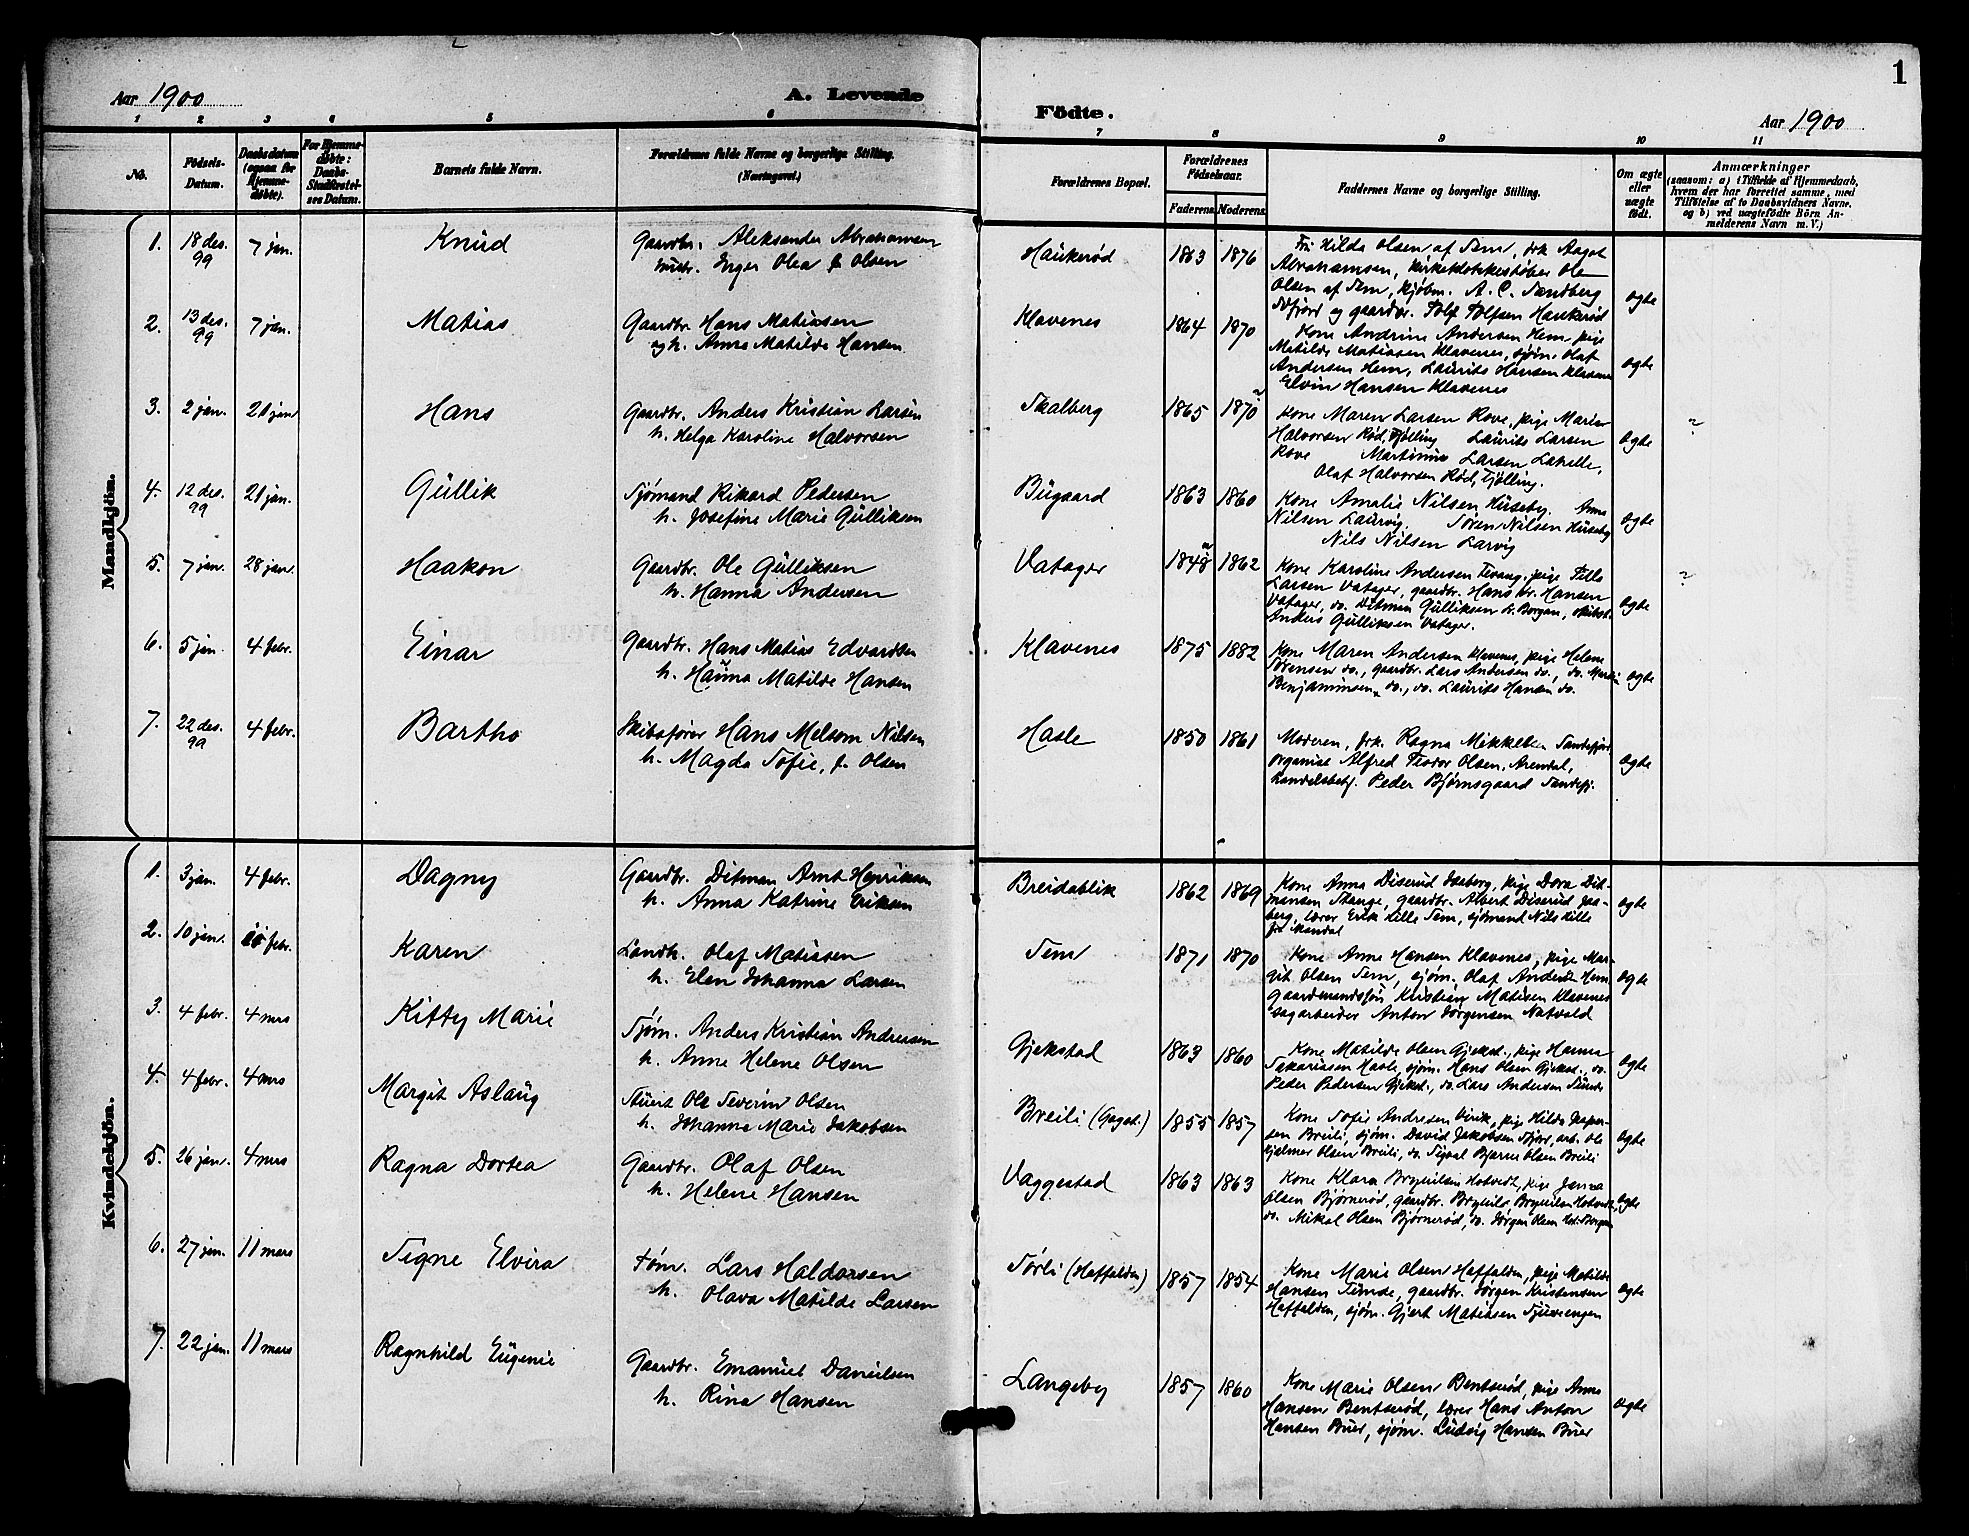 1
Aar 1900
A. Levende
Födte.
Aar 1900
1 2 3 4 5 6 7 8 9 10 11
No.
Födsels-
Datum.
Daabsdatum
(ogsaa for
Hjemme-
döbte).
For Hjemme-
döbte:
Daabs-
Stadfæstel-
ses Datum.
Barnets fulde Navn.
Forældrenes fulde Navne og borgerlige Stilling.
(Næringsvei.)
Forældrenes Bopæl.
Forældrenes
Födselsaar.
Faderens. Moderens.
Faddernes Navne og borgerlige Stilling.
Om ægte
eller
uægte
födt.
Anmærkninger
(saasom: a) i Tilfælde af Hjemmedaab,
hvem der har forrettet samme, med
Tilföielse af to Daabsvidners Navne,
og b) ved uægtefödte Börn An-
melderens Navn m. V.)
Mandkjön.
1. 18 des. 99 7 jan. Knud
Gaardbr. Aleksander Abrahamsen
hustr. Inger Olea f. Olsen
Haukerød 1863 1876
Fru Hilda Olsen af Sem, frk Aagot
Abrahamsen, kirkeklokkestøber Ole
Olsen af Sem, kjøbm. A. C. Sandberg
Sfjord og gaardbr. Tolf Tolfsen Haukerød
ægte
2. 13 des. 99 7 jan. Matias
Gaardbr. Hans Matiassen
og h. Anna Matilde Hansen
Klavenes 1864 1870
Kone Andrine Andersen Hem, pige
Matilde Matiassen Klavenes, sjøm. Olaf
Andersen Hem, Laurits Hansen Klavenes
Elvin Hansen Klavenes
ægte
3. 2 jan. 21 jan Hans
Gaardbr. Anders Kristian Larsen
h. Helga Karoline Halvorsen
Skalberg 1865 1870
Kone Maren Larsen Rove, pige Marie
Halvorsen Rød, Tjølling Laurits Larsen
Rove Martinius Larsen Lahelle,
Olaf Halvorsen Rød, Tjølling.
ægte ?
4. 12 des. 99 21 jan. Gullik
Sjømand Rikard Pedersen
h. Josefine Marie Gulliksen
Bugaard 1863 1860
Kone Amalie Nilsen Huseby. Anne
Nilsen Laurvig. Søren Nilsen Huseby
Nils Nilsen Larvig
ægte
5. 7 jan. 28 jan. Haakon
Gaardbr. Ole Gulliksen
h. Hanna Andersen
Vatager 1848 1862
Kone Karoline Andersen Tevang, pige Tilla
Larsen Vatager, gaardbr. Hans Kr. Hansen
Vatager, do. Ditman Gulliksen Borgan,
Anders Gulliksen Vatager.
ægte ?
6. 5 jan. 4 febr. Einar
Gaardbr. Hans Matias Edvardsen
h. Hanna Matilde Hansen
Klavenes 1875 1882
Kone Maren Andersen Klavenes, pige Helene
Sørensen do., gaardbr. Lars Andersen do., do. Martin
Benjaminsen do., do. Laurits Hansen do.
ægte
7. 22 des. 99 4 febr. Bartho
Skibsfører Hans Melsom Nilsen
h. Magda Sofie, f. Olsen
Hasle 1850 1861
Moderen, frk. Ragna Mikkelsen Sandefjord
organist Alfred Teodor Olsen, Arendal,
handelsbetj. Peder Bjørnsgaard Sandefj.
ægte
Kvindekjön.
1. 3 jan. 4 febr. Dagny
Gaardbr. Ditman Arnt Henriksen
h. Anna Katrine Eriksen
Breidablik 1862 1869
Kone Anna Diserud Jaaberg, pige Dora Dit-
mansen Stange, gaardbr. Albert Diserud Jaa-
berg, lærer Erik Lille Sem, sjømand Nils Lille
fra Mandal
ægte
2. 10 jan. febr. Karen
Landh. Olaf Matiasen
h. Elen Johanna Larsen
Sem 1871 1870
Kone Anne Hansen Klavenes, pige Mar-
git Olsen Sem, sjøm. Olaf Anders Hem
gaardmandssøn Kristian Matisen Klavenes
sagarbeider Anton Jørgensen Natvold
ægte
3. 4 febr. 4 mrs Kitty Marie
Sjøm. Anders Kristian Andersen
h. Anne Helene Olsen
Gjekstad 1863 1860
Kone Matilde Olsen Gjekst., pige Hanna
Sakariasen Hasle, sjøm. Hans Olsen Gjekst., do.
Peder Pedersen Gjekst., do. Lars Andersen Sunde
ægte
4. 4 febr. 4 mrs Margit Aslaug
Stuert Ole Severin Olsen
h. Johanna Marie Jakobsen
Breili (Gogst.) 1855 1857
Kone Sofie Andresen Virik, pige Hilda Kasper-
sen Breili, sjøm. David Jakobsen Sfjord, arb. Ole
Hjalmer Olsen Breili, do. Sigval Bjarne Olsen Breili
ægte
5. 26 jan. 4 mrs Ragna Dortea
Gaardbr. Olaf Olsen
h. Helene Hansen
Vaggestad 1863 1863
Kone Klara Brynilsen Hotvedt, pige Janna
Olsen Bjørnerød, gaardbr. Brynild Brynilsen Hotvedt,
do. Mikal Olsen Bjørnerød, do. Jørgen Olsen Borgen
ægte
6. 27 jan. 11 mars Signe Elvira
tøm. Lars Haldorsen
h. Olava Matilde Larsen
Sørli (Haffalden) 1857 1854
Kone Marie Olsen Haffalden, pige Matilde
Hansen Sunde, gaardbr. Jørgen Kristensen
Haffalden, sjøm. Gjert Matiasen Tjuvengen
ægte
7. 22 jan. 11 mars Ragnhild Eugenie
Gaardbr. Emanuel Danielsen
h. Rina Hansen
Langeby 1857 1860
Kone Marie Olsen Bentserød, pige Anna
Hansen Bentserød, lærer Hans Anton
Hansen Buer, sjøm. Ludvig Hansen Buer
ægte